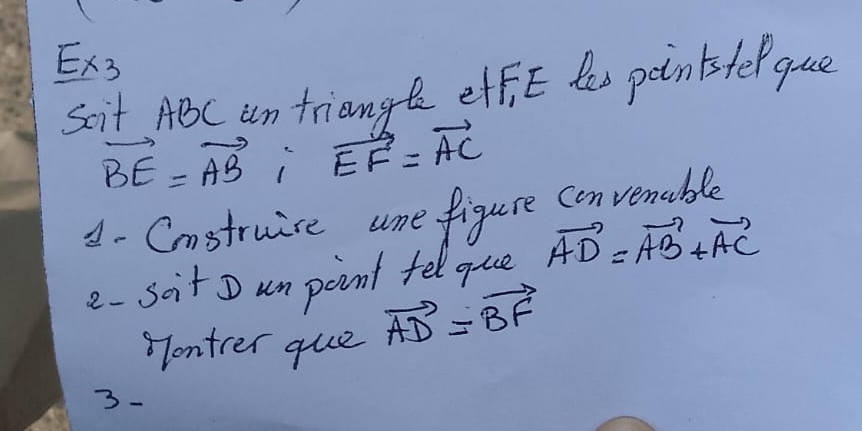 Ex3
Soit ABC un triangle et F,E les points tel que
$\overrightarrow{BE} = \overrightarrow{AB}$ ; $\overrightarrow{EF} = \overrightarrow{AC}$
1- Construire une figure convenable
2- Soit D un point tel que $\overrightarrow{AD} = \overrightarrow{AB} + \overrightarrow{AC}$
Montrer que $\overrightarrow{AD} = \overrightarrow{BF}$
3-